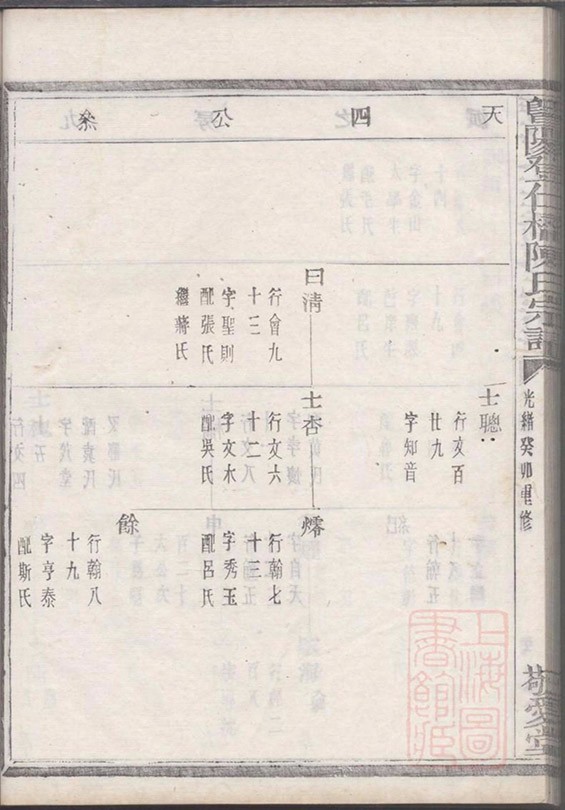 暨陽登仁橋陳氏宗譜
光緒癸卯重修
敬愛堂
天四公彖
士聰
行文百
廿九
字知音
曰清
行會九
十三
字聖則
配張氏
繼蔣氏
士杏
行文六
十二
字文木
配吳氏
行翰七
十三
字秀玉
配呂氏
餘
行翰八
十九
字亨泰
配斯氏
上海圖書館藏